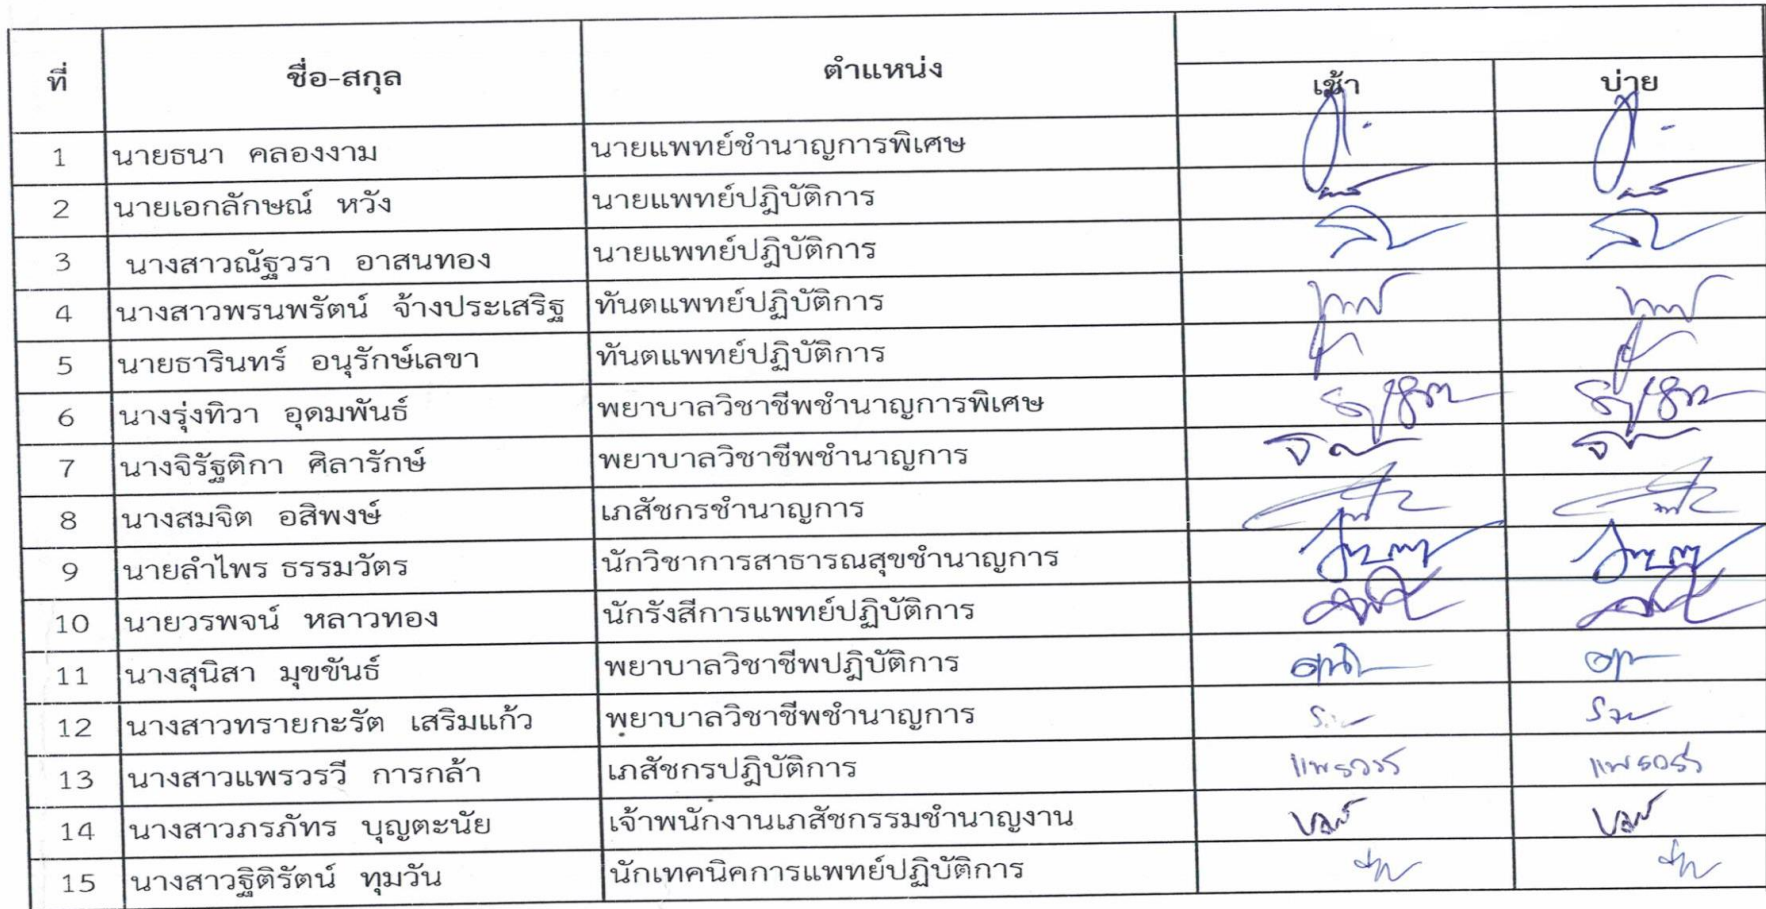 ที่ ชื่อ-สกุล ตำแหน่ง
เช้า บ่าย
1 นายธนา คลองงาม นายแพทย์ชำนาญการพิเศษ
2 นายเอกลักษณ์ หวัง นายแพทย์ปฎิบัติการ
3 นางสาวณัฐวรา อาสนทอง นายแพทย์ปฎิบัติการ
4 นางสาวพรนพรัตน์ จ้างประเสริฐ ทันตแพทย์ปฏิบัติการ
5 นายธารินทร์ อนุรักษ์เลขา ทันตแพทย์ปฏิบัติการ
6 นางรุ่งทิวา อุดมพันธ์ พยาบาลวิชาชีพชำนาญการพิเศษ
7 นางจิรัฐติกา ศิลารักษ์ พยาบาลวิชาชีพชำนาญการ
8 นางสมจิต อสิพงษ์ เภสัชกรชำนาญการ
9 นายลำไพร ธรรมวัตร นักวิชาการสาธารณสุขชำนาญการ
10 นายวรพจน์ หลาวทอง นักรังสีการแพทย์ปฏิบัติการ
11 นางสุนิสา มุขขันธ์ พยาบาลวิชาชีพปฎิบัติการ
12 นางสาวทรายกะรัต เสริมแก้ว พยาบาลวิชาชีพชำนาญการ
13 นางสาวแพรวรวี การกล้า เภสัชกรปฎิบัติการ แพรวรวี แพรวรวี
14 นางสาวภรภัทร บุญตะนัย เจ้าพนักงานเภสัชกรรมชำนาญงาน
15 นางสาวฐิติรัตน์ ทุมวัน นักเทคนิคการแพทย์ปฏิบัติการ